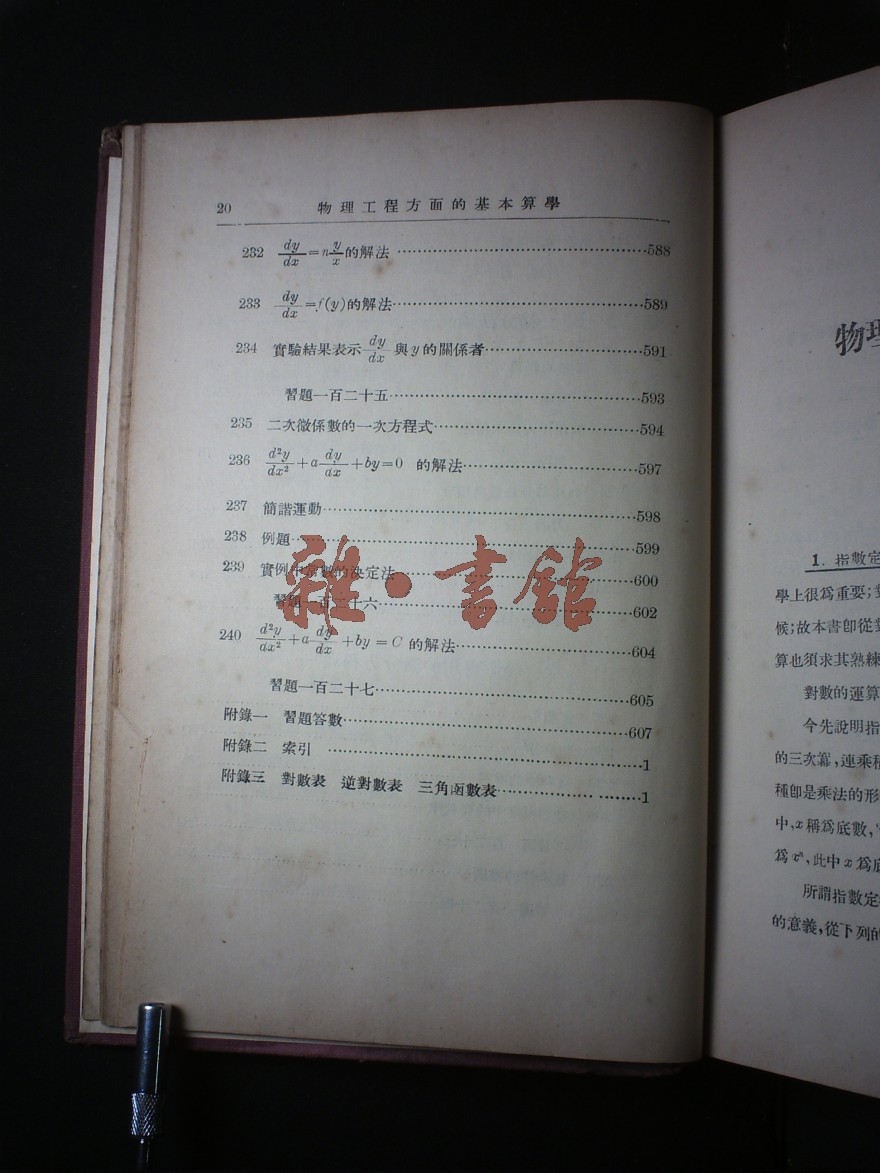 20 物理工程方面的基本算學
232 dy/dx=n y/x 的解法 ……588
233 dy/dx=f(y)的解法……589
234 實驗結果表示 dy/dx 與y的關係者……591
習題一百二十五……593
235 二次微係數的一次方程式……594
236 d²y/dx²+a dy/dx+by=0 的解法……597
237 簡諧運動……598
238 例題……599
239 實例中常數的決定法……600
習題一百二十六……602
240 d²y/dx²+a dy/dx+by=C 的解法……604
習題一百二十七……605
附錄一 習題答數……607
附錄二 索引 ……1
附錄三 對數表 逆對數表 三角函數表……1
雜·書館
物理
1. 指數定
學上很爲重要;
候;故本書卽從對
算也須求其熟練
對數的運算
今先說明指
的三次冪,連乘積
種卽是乘法的形
中,x稱爲底數,
爲xⁿ,此中x爲底
所謂指數定
的意義,從下列的